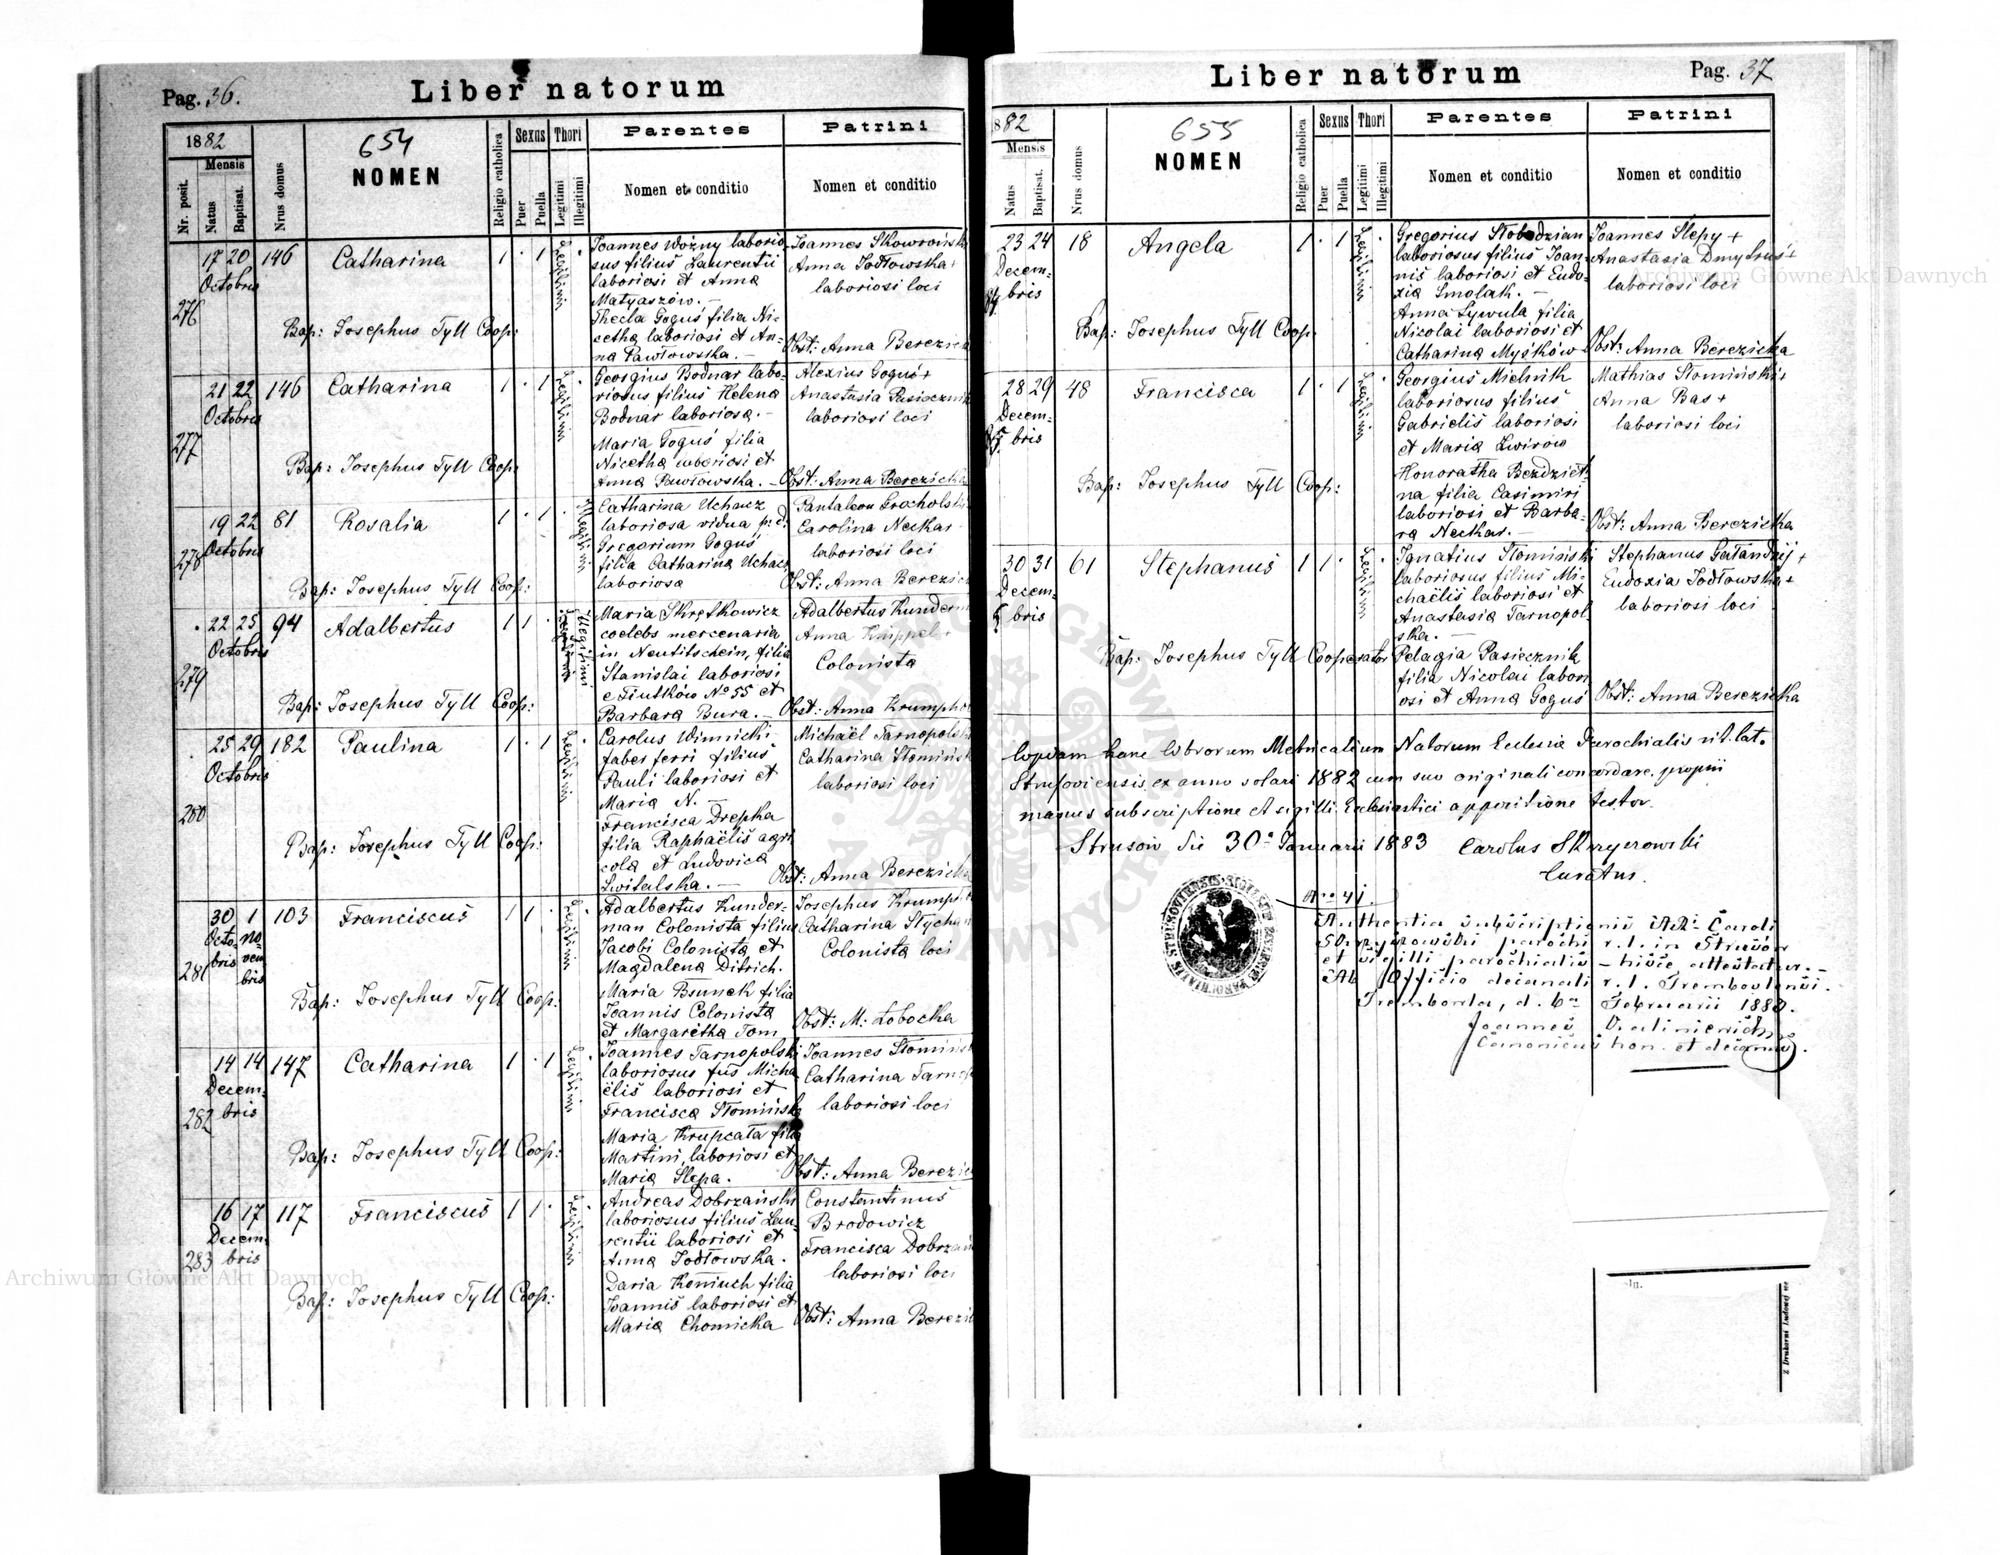 Pag. 36.
Liber natorum
1882
Mensis
Nr. posit.
Natus
Baptisat.
Nrus domus
654
NOMEN
Religio catholica
Sexus
Puer
Puella
Thori
Legitimi
Illegitimi
Parentes
Nomen et conditio
Patrini
Nomen et conditio
276
17 20
Octobris
146
Catharina
1 · 1
Legitimi
Joannes Woźny laborio-
sus filius Laurentii
laboriosi et Anna
Matyaszów. —
Thecla Goguś filia Ni-
cetha laboriosi et An-
na Pawłowska. —
Joannes Skowrońsk
Anna Jodłowska+
laboriosi loci
Bap: Josephus Tyll Coop:
Obst: Anna Berezick
277
21 22
Octobris
146
Catharina
1 · 1
Legitimi
Georgius Bodnar labo-
riosus filius Helena
Bodnar laboriosa. —
Maria Goguś filia
Nicetha laboriosi et
Anna Pawłowska. —
Alexius Goguś+
Anastasia Pasiecznik
laboriosi loci
Bap: Josephus Tyll Coop:
Obst: Anna Berezicka
278
19 22
Octobris
81
Rosalia
1 · 1
Illegitimi
Catharina Uchacz
laboriosa vidua p: d:
Gregorium Goguś
filia Catharina Uchacz
laboriosa
Pantaleon Grocholsk
Carolina Neckar
laboriosi loci
Bap: Josephus Tyll Coop:
Obst: Anna Berezick
279
22 25
Octobris
94
Adalbertus
1 1 ·
Illegitimi
Maria Skrętkowicz
coelebs mercenaria
in Neutitschein, filia
Stanislai laboriosi
e Tiutków No 55 et
Barbara Bura. —
Adalbertus Kunderm
Anna Knippel +
Colonista
Bap: Josephus Tyll Coop:
Obst: Anna Krumpho
280
25 29
Octobris
182
Paulina
1 · 1
Legitimi
Carolus Winnicki
faber ferri filius
Pauli laboriosi et
Maria N. —
Francisca Drepka
filia Raphaëlis agri
cola et Ludovica
Świtalska. —
Michaël Tarnopolsk
Catharina Słomińsk
laboriosi loci
Bap: Josephus Tyll Coop:
Obst: Anna Berezicka
281
30 1
Octo- no-
bris vem
bris
103
Franciscus
1 1 ·
Legitimi
Adalbertus Kunder-
man Colonista filius
Jacobi Colonista et
Magdalena Ditrich.
Maria Bsunek filia
Joannis Colonista
et Margaretha Tom
Josephus Krumpho
Catharina Stychan
Colonista loci
Bap: Josephus Tyll Coop:
Obst: M: Łobocka
282
14 14
Decem-
bris
147
Catharina
1 · 1
Legitimi
Joannes Tarnopolski
laboriosus fus Micha
ëlis laboriosi et
Francisca Słomińsk
Maria Krupcata filia
Martini, laboriosi et
Maria Ślepa.
Joannes Słomińsk
Catharina Tarno
laboriosi loci
Bap: Josephus Tyll Coop:
Obst: Anna Berezic
283
16 17
Decem-
bris
117
Franciscus
1 1 ·
Legitimi
Andreas Dobrzański
laboriosus filius Lau-
rentii laboriosi et
Anna Jodłowska.
Daria Koniuch filia
Joannis laboriosi et
Maria Chomicka
Constantinus
Brodowicz
Francisca Dobrzań
laboriosi loci
Bap: Josephus Tyll Coop:
Obst: Anna Berezic
Liber natorum
Pag. 37
82
Mensis
Natus
Baptisat.
Nrus domus
655
NOMEN
Religio catholica
Sexus
Puer
Puella
Thori
Legitimi
Illegitimi
Parentes
Nomen et conditio
Patrini
Nomen et conditio
23 24
Decem-
bris
18
Angela
1 · 1
Legitimi
Gregorius Słobodzian
laboriosus filius Joan-
nis laboriosi et Eudo-
xia Smolak. —
Anna Sywula filia
Nicolai laboriosi et
Catharina Myśków
Joannes Slepy +
Anastasia Dmytruś+
laboriosi loci
Bap: Josephus Tyll Coop:
Obst: Anna Berezicka
28 29
Decem-
bris
48
Francisca
1 · 1
Legitimi
Georgius Mielnik
laboriosus filius
Gabrielis laboriosi
et Maria Zwirow
Honoratha Bezdziet-
na filia Casimiri
laboriosi et Barba-
ra Neckar. —
Mathias Słomiński+
Anna Bas+
laboriosi loci
Bap: Josephus Tyll Coop:
Obst: Anna Berezicka
30 31
Decem-
bris
61
Stephanus
1 1 ·
Legitimi
Ignatius Słomiński
laboriosus filius Mi-
chaëlis laboriosi et
Anastasia Tarnopol
ska. —
Pelagia Pasiecznik
filia Nicolai labori
osi et Anna Goguś
Stephanus Gałandzij +
Eudoxia Jodłowska+
laboriosi loci
Bap: Josephus Tyll Cooperator
Obst: Anna Berezicka
Copiam hanc Librorum Metricalium Natorum Ecclesia Parochialis rit. lat.
Strusoviensis ex anno solari 1882 cum suo originali concordare, proprii
manus subscriptione et sigilli Ecclesiastici appositione testor.
Strusów die 30a Januarii 1883 Carolus Skrzyerowski
Curatus.
Nro 41.
Authentia subscriptionis
parochi r. l. in Strusów
et sigilli parochialis — hisce attestatur. —
Ab Officio decanali r. l. Trembovlensi.
Trembowla, d. 6a Februarii 1883.
Joannes
Canonicus hon. et decanus.
Z Drukarni Ludowej we
Archiwum Główne Akt Dawnych
Archiwum Główne Akt Dawnych